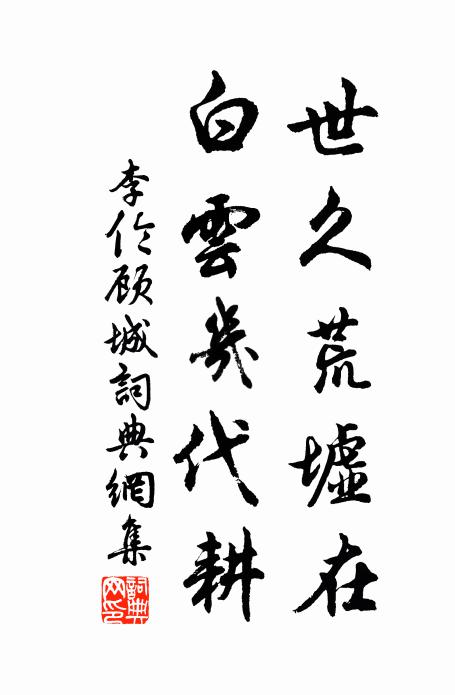 世久荒墟在
白雲幾代耕
李伦顾城詞典網集
詞典網印